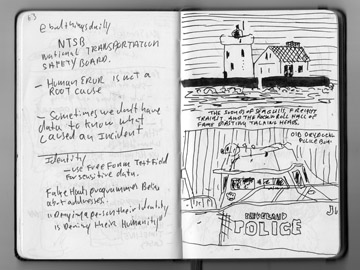 63
@badthingsdaily
NTSB
National TRANSPORTATION
SAFETY BOARD.
- HUMAN ERROR is not a
ROOT cause
- Sometimes we don't have
data to know what
caused an incident
Identity
- use Free Form Text Field
for sensitive data.
False Hoods programmers Believe
about addresses.
"Denying a person their identity
is Denying their Humanity"
THE SOUNDS OF SEAGULLS, FREIGHT
TRANSIT, AND THE ROCK N ROLL HALL OF
FAME BLASTING TALKING HEADS.
OLD
POLICE BOAT
CLEVELAND
POLICE